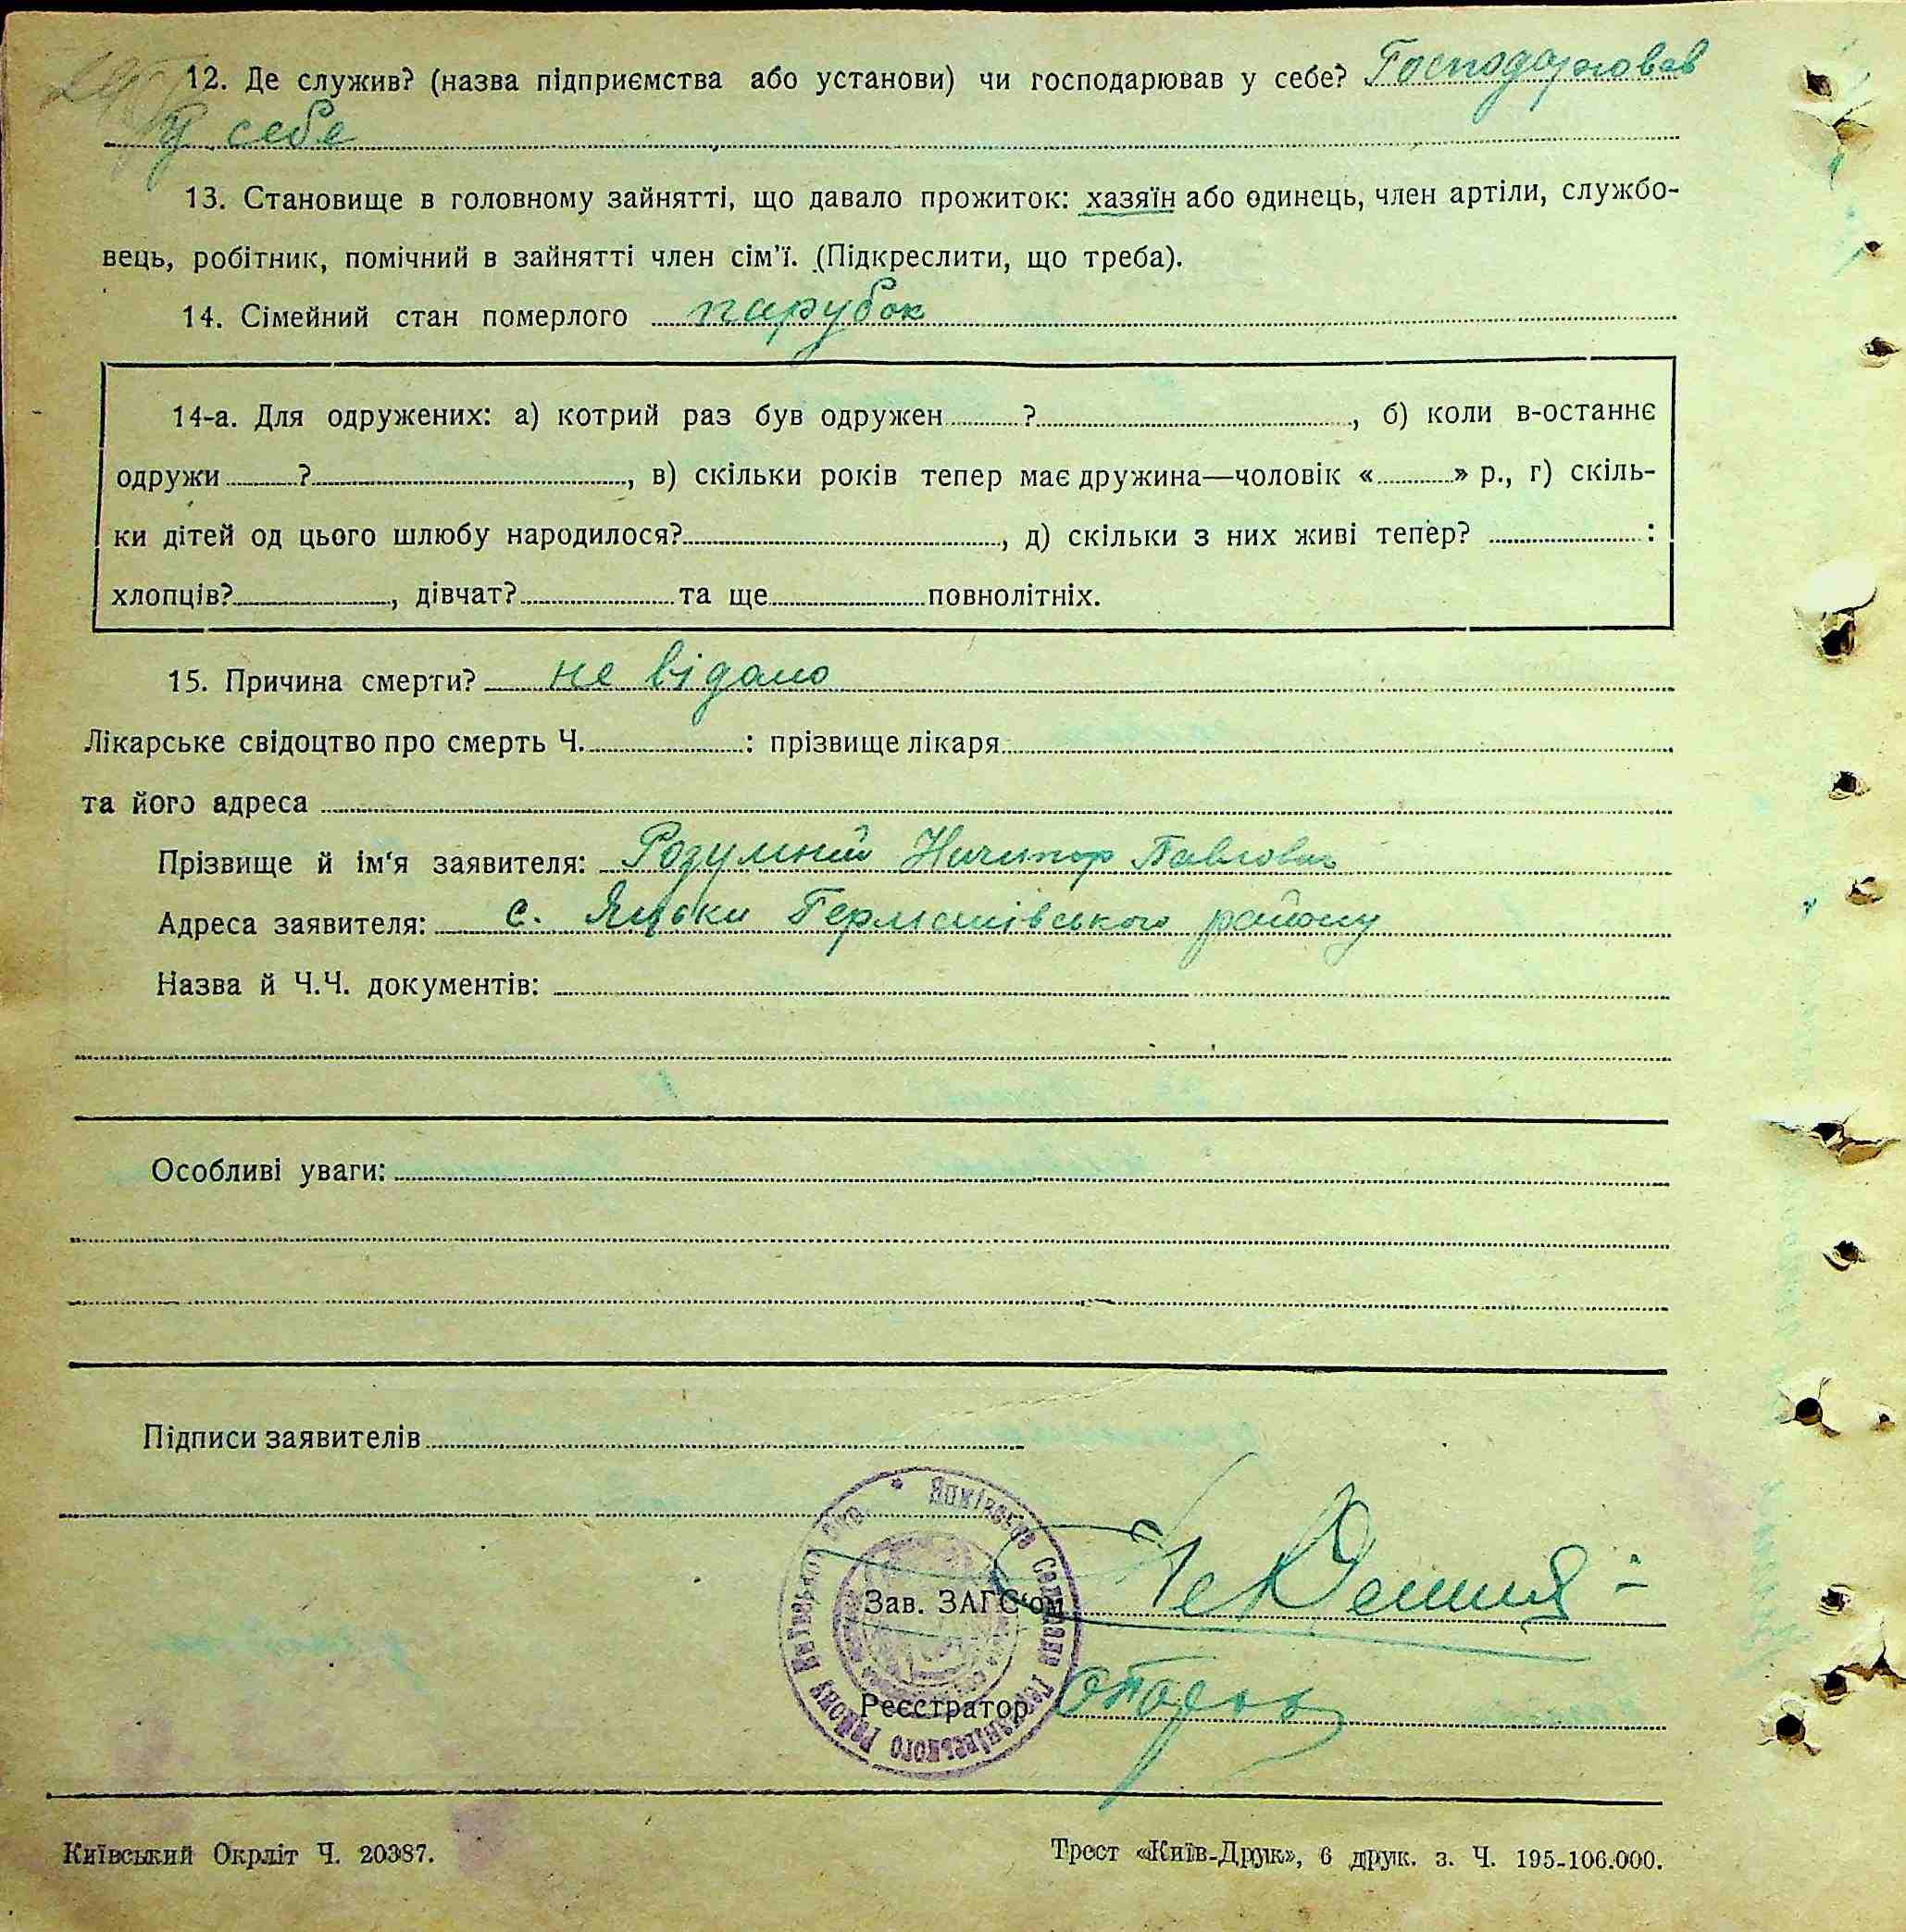 12. Де служив? (назва підприємства або установи) чи господарював у себе? Господарював
у себе
13. Становище в головному зайнятті, що давало прожиток: хазяїн або одинець, член артіли, службо-
вець, робітник, помічний в зайнятті член сім'ї. (Підкреслити, що треба).
14. Сімейний стан померлого парубок
14-а. Для одружених: а) котрий раз був одружен ?, б) коли в-останнє
одружи ?, в) скільки років тепер має дружина—чоловік « » р., г) скіль-
ки дітей од цього шлюбу народилося?, д) скільки з них живі тепер? :
хлопців?, дівчат? та ще повнолітніх.
15. Причина смерти? не відомо
Лікарське свідоцтво про смерть Ч. : прізвище лікаря
та його адреса
Прізвище й ім'я заявителя: Розумний Ничипор Павлович
Адреса заявителя: с. Яцьки Германівського району
Назва й Ч.Ч. документів:
Особливі уваги:
Підписи заявителів
Зав. ЗАГС'ом
Реєстратор
Київський Окрліт Ч. 20387.
Трест «Київ-Друк», 6 друк. з. Ч. 195-106.000.